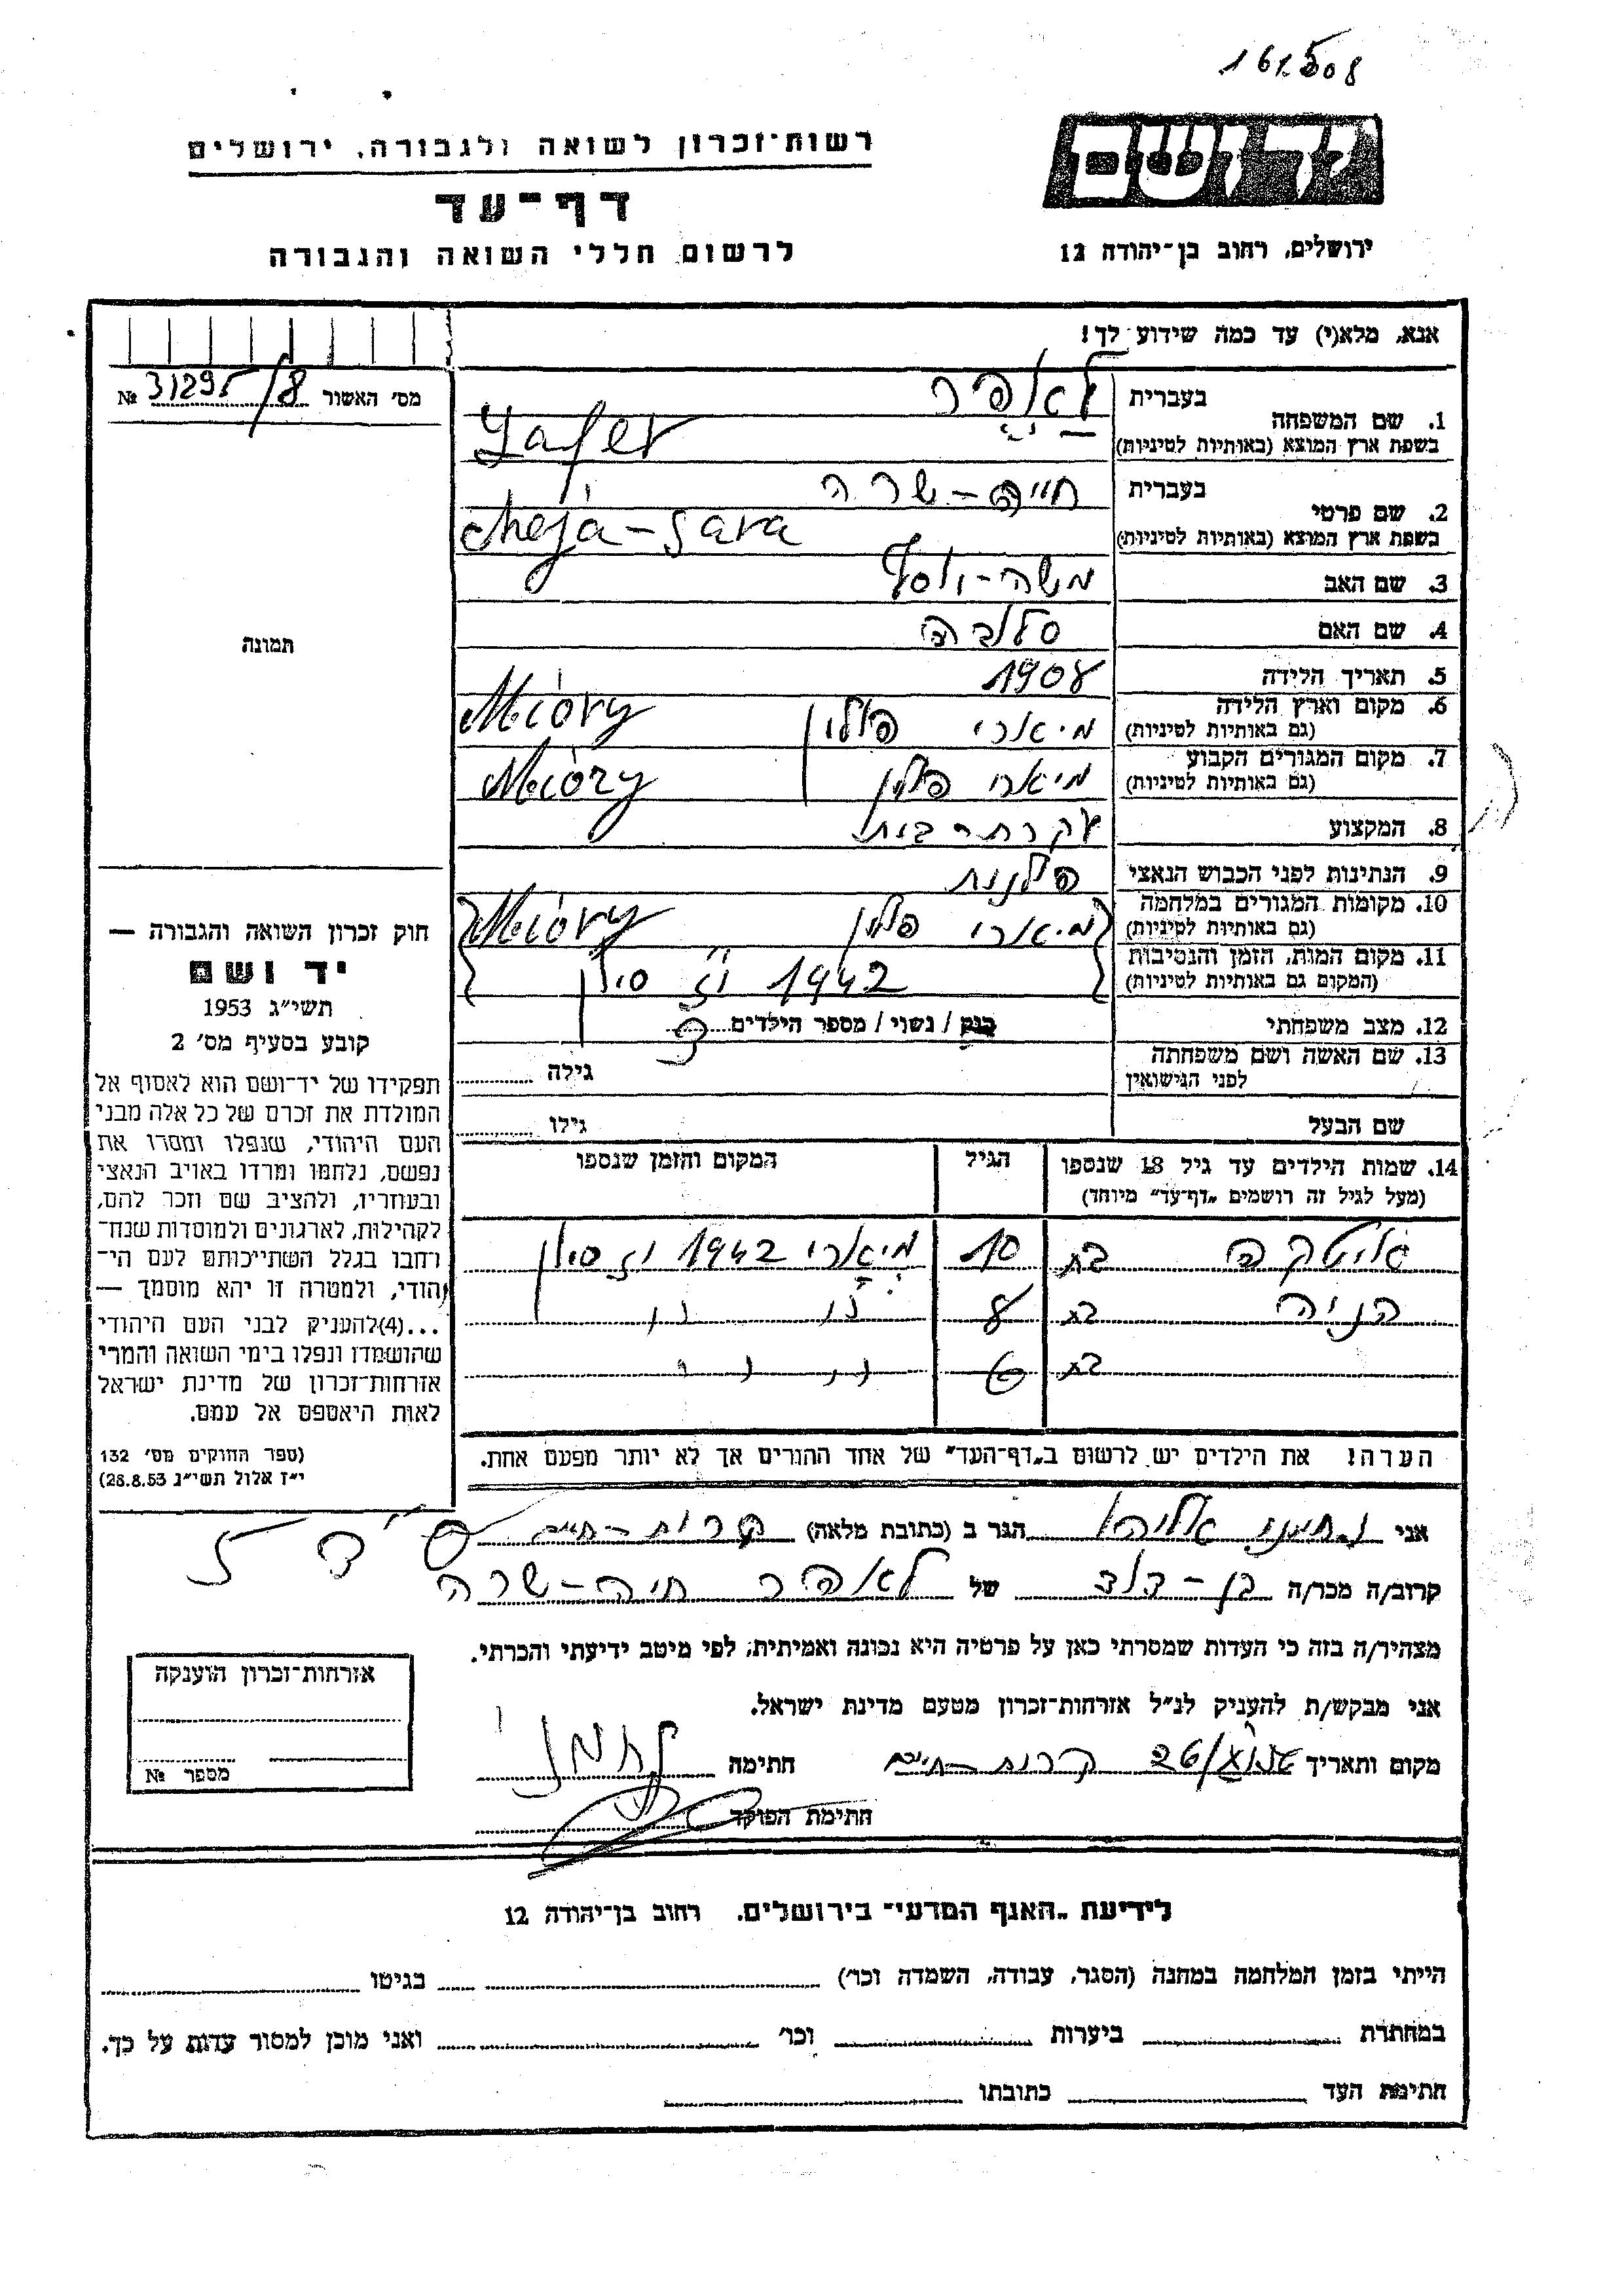 161508
יד ושם
רשות־זכרון לשואה ולגבורה, ירושלים
דף־עד
לרשום חללי השואה והגבורה
ירושלים, רחוב בן־יהודה 12
אנא, מלא(י) עד כמה שידוע לך!
מס' האשור 31295/8 №
תמונה
1. שם המשפחה
בעברית
לאפר
בשפת ארץ המוצא (באותיות לטיניות)
Lafer
2. שם פרטי
בעברית
חיה-שרה
בשפת ארץ המוצא (באותיות לטיניות)
cheja-Sara
3. שם האב משה-יוסף
4. שם האם
5. תאריך הלידה 1908
6. מקום וארץ הלידה
(גם באותיות לטיניות) מיארי פולין Mióry
7. מקום המגורים הקבוע
(גם באותיות לטיניות) מיארי פולין Mióry
8. המקצוע עקרת-בית
9. הנתינות לפני הכבוש הנאצי פולנית
10. מקומות המגורים במלחמה
(גם באותיות לטיניות) מיארי פולין Mióry
11. מקום המות, הזמן והנסיבות
(המקום גם באותיות לטיניות) 1942 יז סיון
12. מצב משפחתי רווק / נשוי / מספר הילדים 3
13. שם האשה ושם משפחתה
לפני הנישואין
גילה
שם הבעל
גילו
14. שמות הילדים עד גיל 18 שנספו
(מעל לגיל זה רושמים „דף־עד" מיוחד)
הגיל
המקום והזמן שנספו
בת 10 מיארי 1942 יז סיון
בת 8 " "
בת 6 " " "
הערה! את הילדים יש לרשום ב„דף־העד" של אחד ההורים אך לא יותר מפעם אחת.
חוק זכרון השואה והגבורה —
יד ושם
תשי"ג 1953
קובע בסעיף מס' 2
תפקידו של יד־ושם הוא לאסוף אל
המולדת את זכרם של כל אלה מבני
העם היהודי, שנפלו ומסרו את
נפשם, נלחמו ומרדו באויב הנאצי
ובעוזריו, ולהציב שם וזכר להם,
לקהילות, לארגונים ולמוסדות שנח־
רחבו בגלל השתייכותם לעם הי־
הודי, ולמטרה זו יהא מוסמך —
...(4) להעניק לבני העם היהודי
שהושמדו ונפלו בימי השואה והמרי
אזרחות־זכרון של מדינת ישראל
לאות היאספם אל עמם.
(ספר החוקים מס' 132
י"ז אלול תשי"ג 28.8.53)
אני נחמני אליהו הגר ב (כתובת מלאה) קרית-חיים
קרוב/ה מכר/ה בן-דוד של לאפר חיה-שרה
מצהיר/ה בזה כי העדות שמסרתי כאן על פרטיה היא נכונה ואמיתית, לפי מיטב ידיעתי והכרתי.
אני מבקש/ת להעניק לנ"ל אזרחות־זכרון מטעם מדינת ישראל.
מקום ותאריך קרית-חיים חתימה
חתימת הפוקד
אזרחות־זכרון הוענקה
מספר №
לידיעת „האגף המדעי" בירושלים. רחוב בן־יהודה 12
הייתי בזמן המלחמה במחנה (הסגר, עבודה, השמדה וכו') בגיטו
במחתרת ביערות וכו' ואני מוכן למסור עדות על כך.
חתימת העד כתובתו